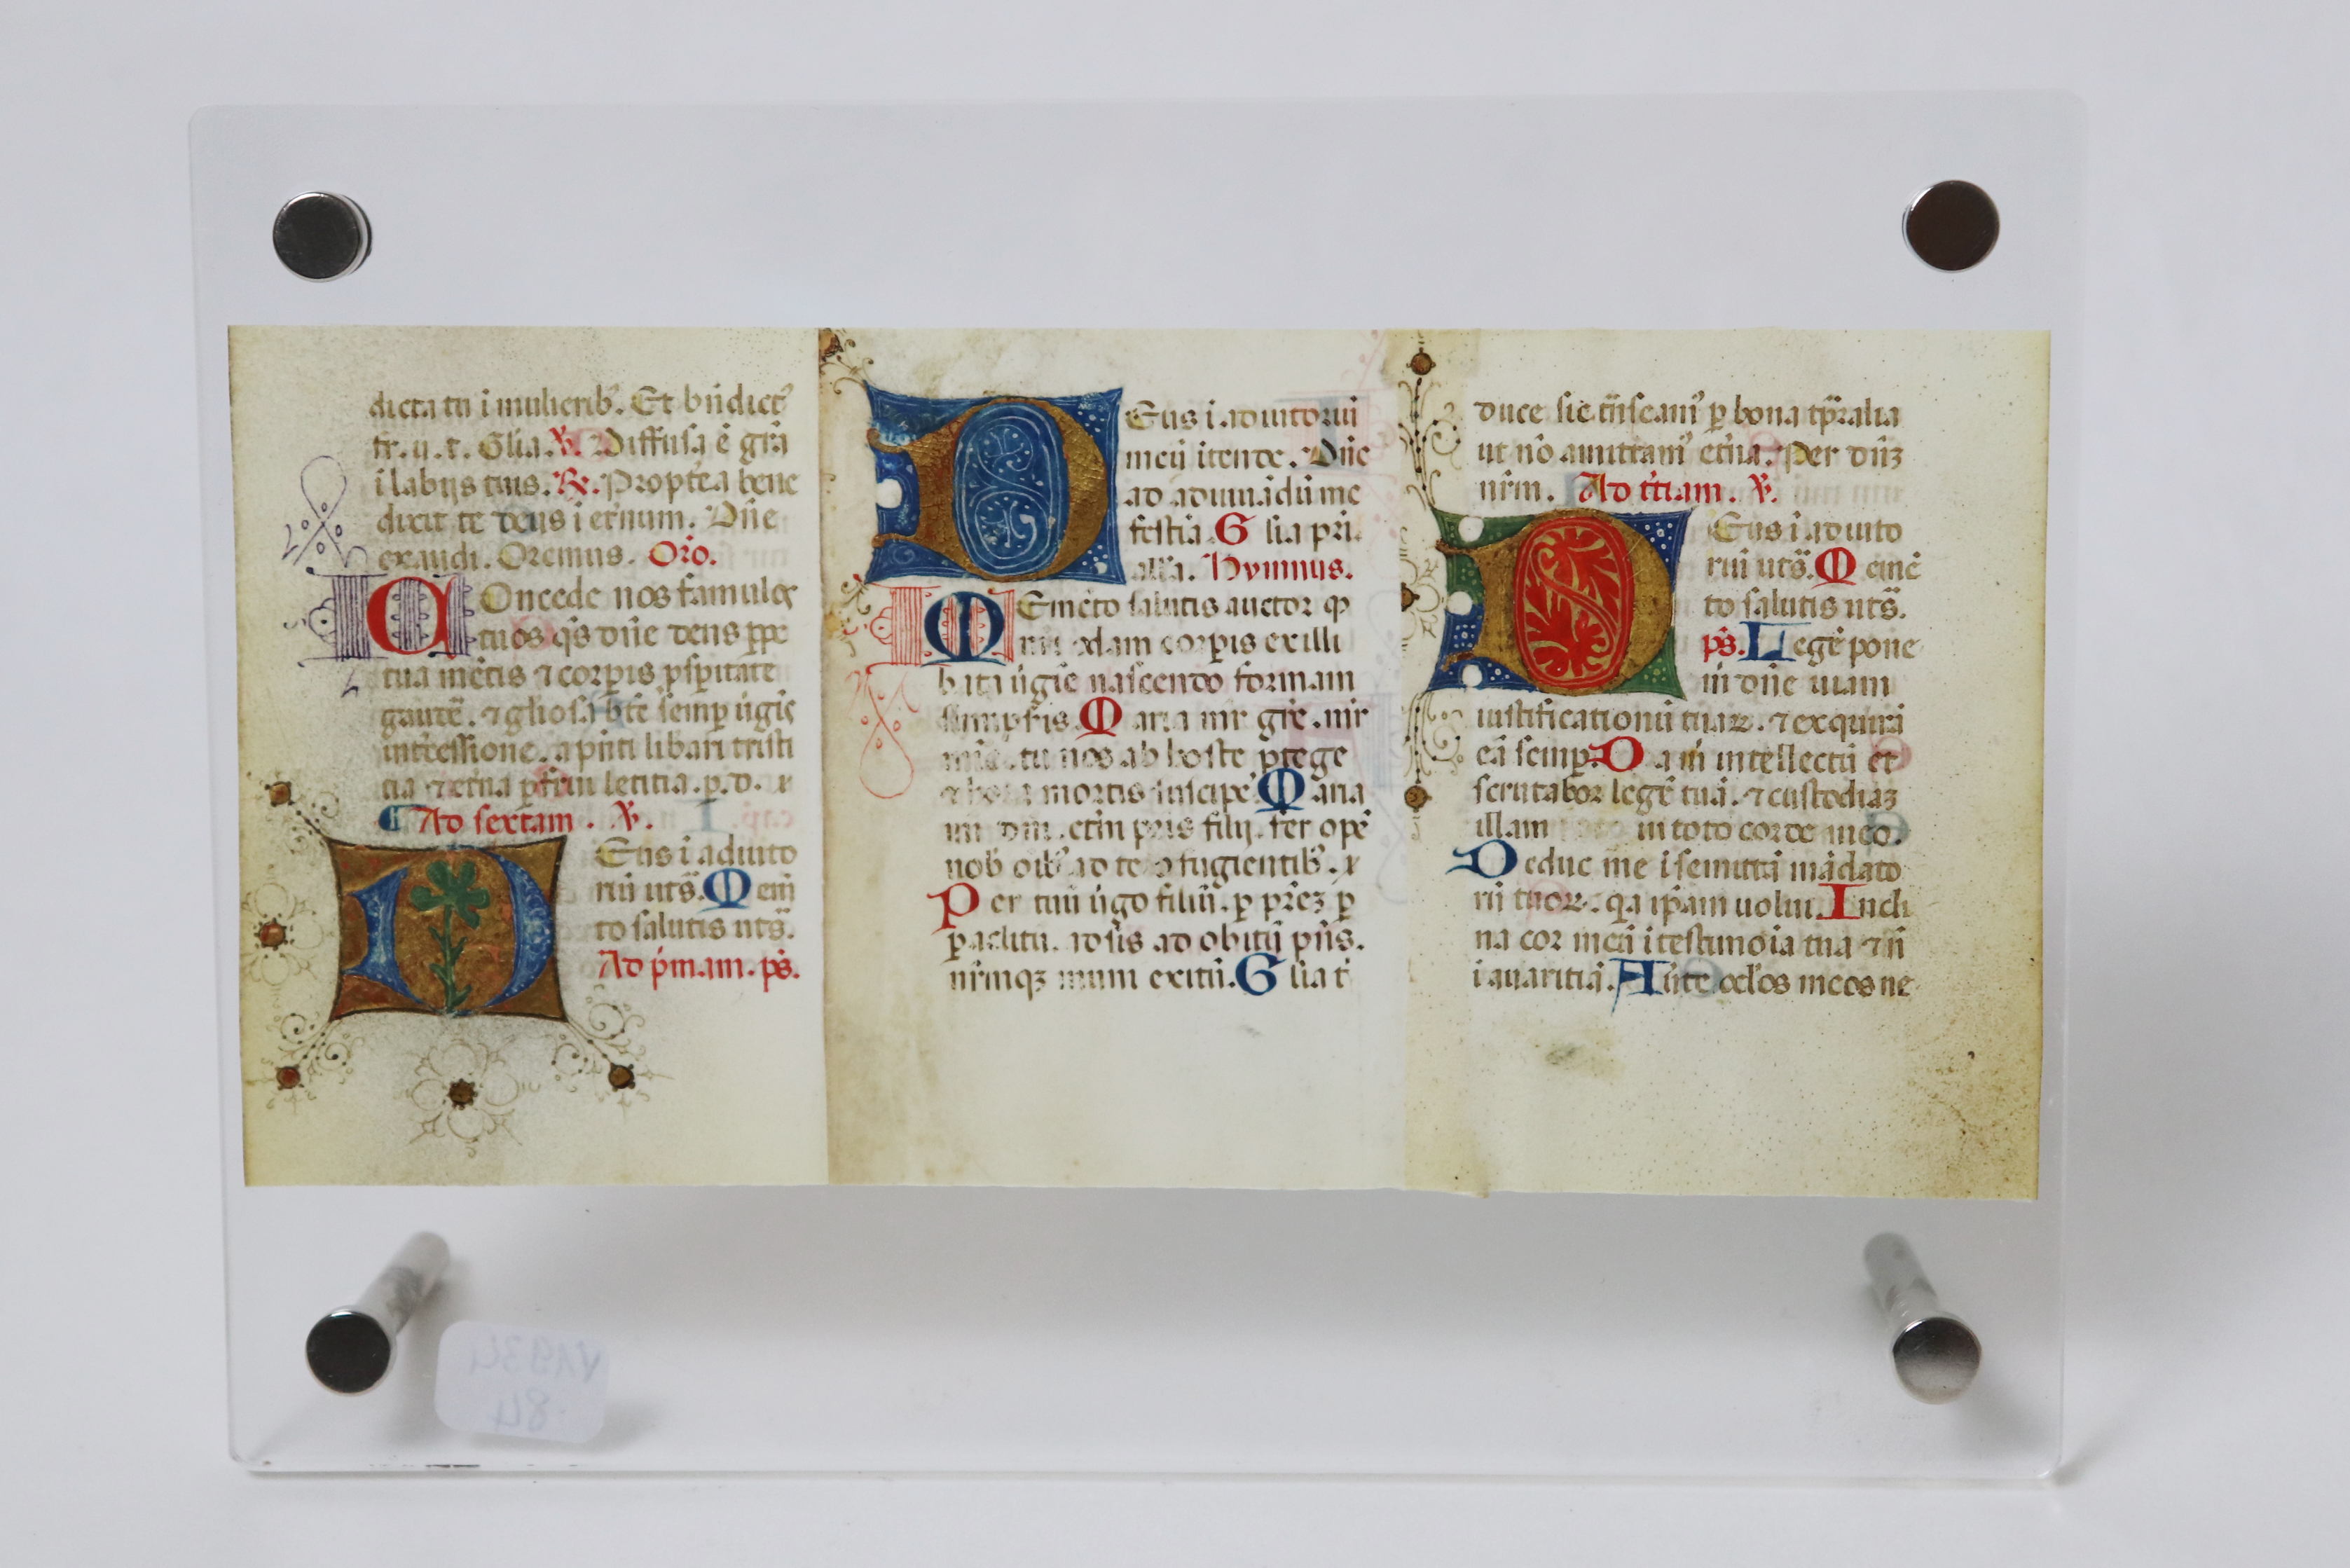 dicta tu i mulierib᾽. Et bn̄dict᾽
fr. u. t. Gl̄ia. ℣. Diffusa ē gr̄a
i labijs tuis. ℟. Propt̄ea bene
dixit te deus i et̄num. Dn̄e
exaudi. Oremus. Or̄o.
COncede nos famulos
tuos qs̄ dn̄e deus ꝑpe
tua mētis ⁊ corꝑis ꝓsꝑitate
gaudē. ⁊ gl̄iosa bt̄e semꝑ
int̄cessione. a pn̄ti lib̄ari tristi
tia ⁊ et̄na ꝑfrui letitia. p. d.
Ad sextam. ℣.
DEus i adiuto
riū ut s̄. Mem̄
to salutis ut s̄.
Ad p̄mam. ps̄.
DEus i adiutoriū
meū itende. Dn̄e
ad adiuuādū me
festīa. Glīa pri.
all̄a. Hymnus.
MEmēto salutis auctor ꝙ
nr̄i corꝑis ex illi
nascendo formam
sumpsīs. Maria mr̄ gr̄e. mr̄
mīe. tu nos ab hoste ꝓtege
⁊ hora mortis suscipe. Maria
filij. fer opē
nob̄ oīb᾽ ad te ꝯfugientib᾽.
Per tuū ūgo filiū. ꝑ pr̄ez ꝑ
ꝑaclitū. adsis ad obitū
nr̄mqꝫ exitū. Glīa t̄
duce sic tn̄seam᾽ ꝑ bona tꝑalia
ut nō amittam᾽ et̄na. Per dn̄ꝫ
nr̄m. Ad t̄tiam. ℣.
DEus i adiuto
riū ut s̄. Memē
to salutis ut s̄.
ps̄. Legē pone
m̄ dn̄e uiam
iustificationū tuaꝝ. ⁊ exquirā
eā semꝑ. Da m̄ intellectū et
scrutabor legē tuā. ⁊ custodiaꝫ
illam in toto corde meo.
Deduc me i semitā mādato
rū tuoꝝ. qa ip̄am uolui. Incli
na cor meū i testimoīa tua ⁊ n̄
i auaritiā. Auc̄te oclos meos ne
V1934
84